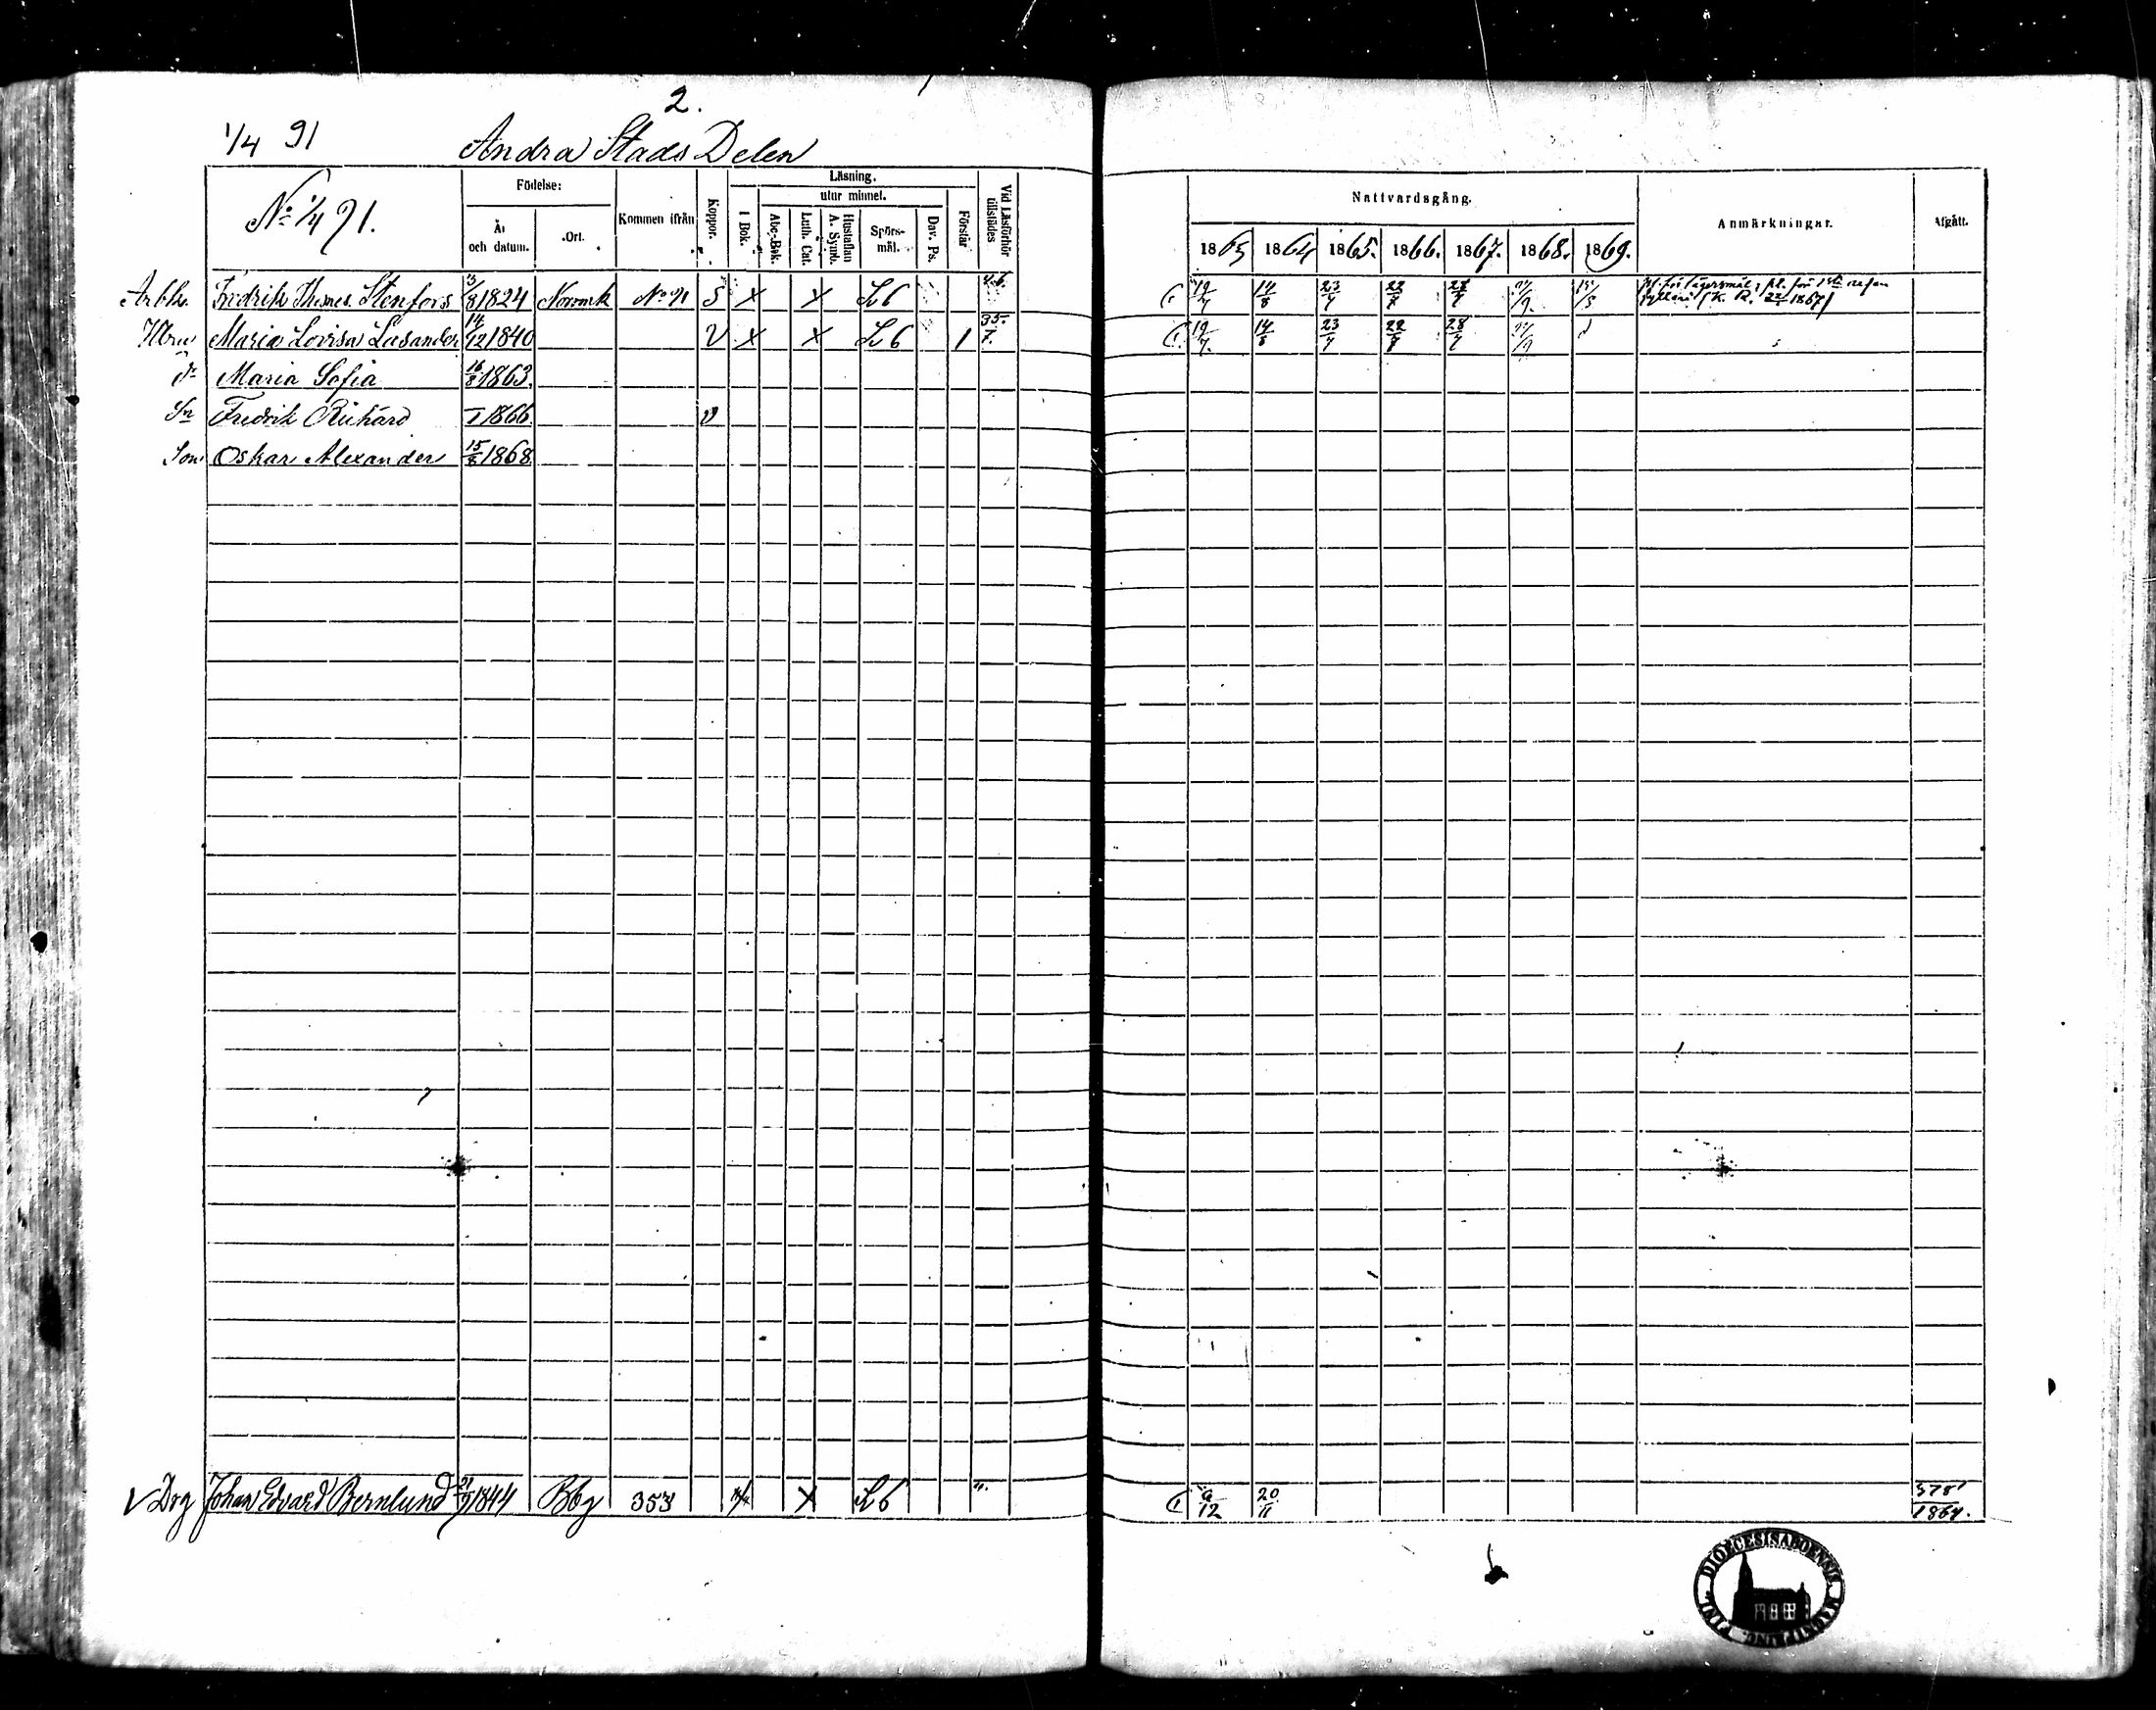 2.
1/4 91 Andra Stads Delen
No 1/4 91.
Födelse:
År och datum.
Ort.
Kommen ifrån
Koppor.
Läsning.
I Bok.
utur minnet.
Abc-Bok.
Luth. Cat.
Hustaflan A. Symb.
Spörs-mål.
Dav. Ps.
Förstår
Vid Läsförhör tillstädes
Nattvardsgång.
1863 1864 1865. 1866. 1867. 1868. 1869.
Anmärkningar.
Afgått.
Arbk. Fredrik Thomas Stenfors /8 1824 Norrmk No 91 S X X L 6 C 19/7 14/8 23/7 22/7 28/7 /9. /5 K. R. 22/ 1867
Hru Maria Lovisa Lasander 14/12 1840 V X X L 6 1 35./7. C. 19/7. 14/8 23/7 22/7 28/7 /9
Dr Maria Sofia 16/8 1863.
Sn Fredrik Richard /1 1866. v
Son Oskar Alexander 15/8 1868.
V Drg Johan Edvard Bernlund 21/9 1844 Bbg 353 X L 6 C /12 20/11 378/1864.
FINL. DIOECESIS ABOENSIS MAGNI PRINC.